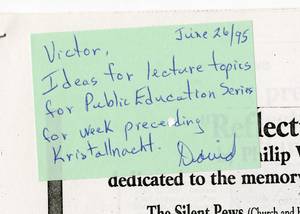 Victor, June 26/95
Ideas for lecture topics
for Public Education Series
for week preceding
Kristallnacht. David
lect
hilip V
dedicated to the memor
The Silent Pews (Church and